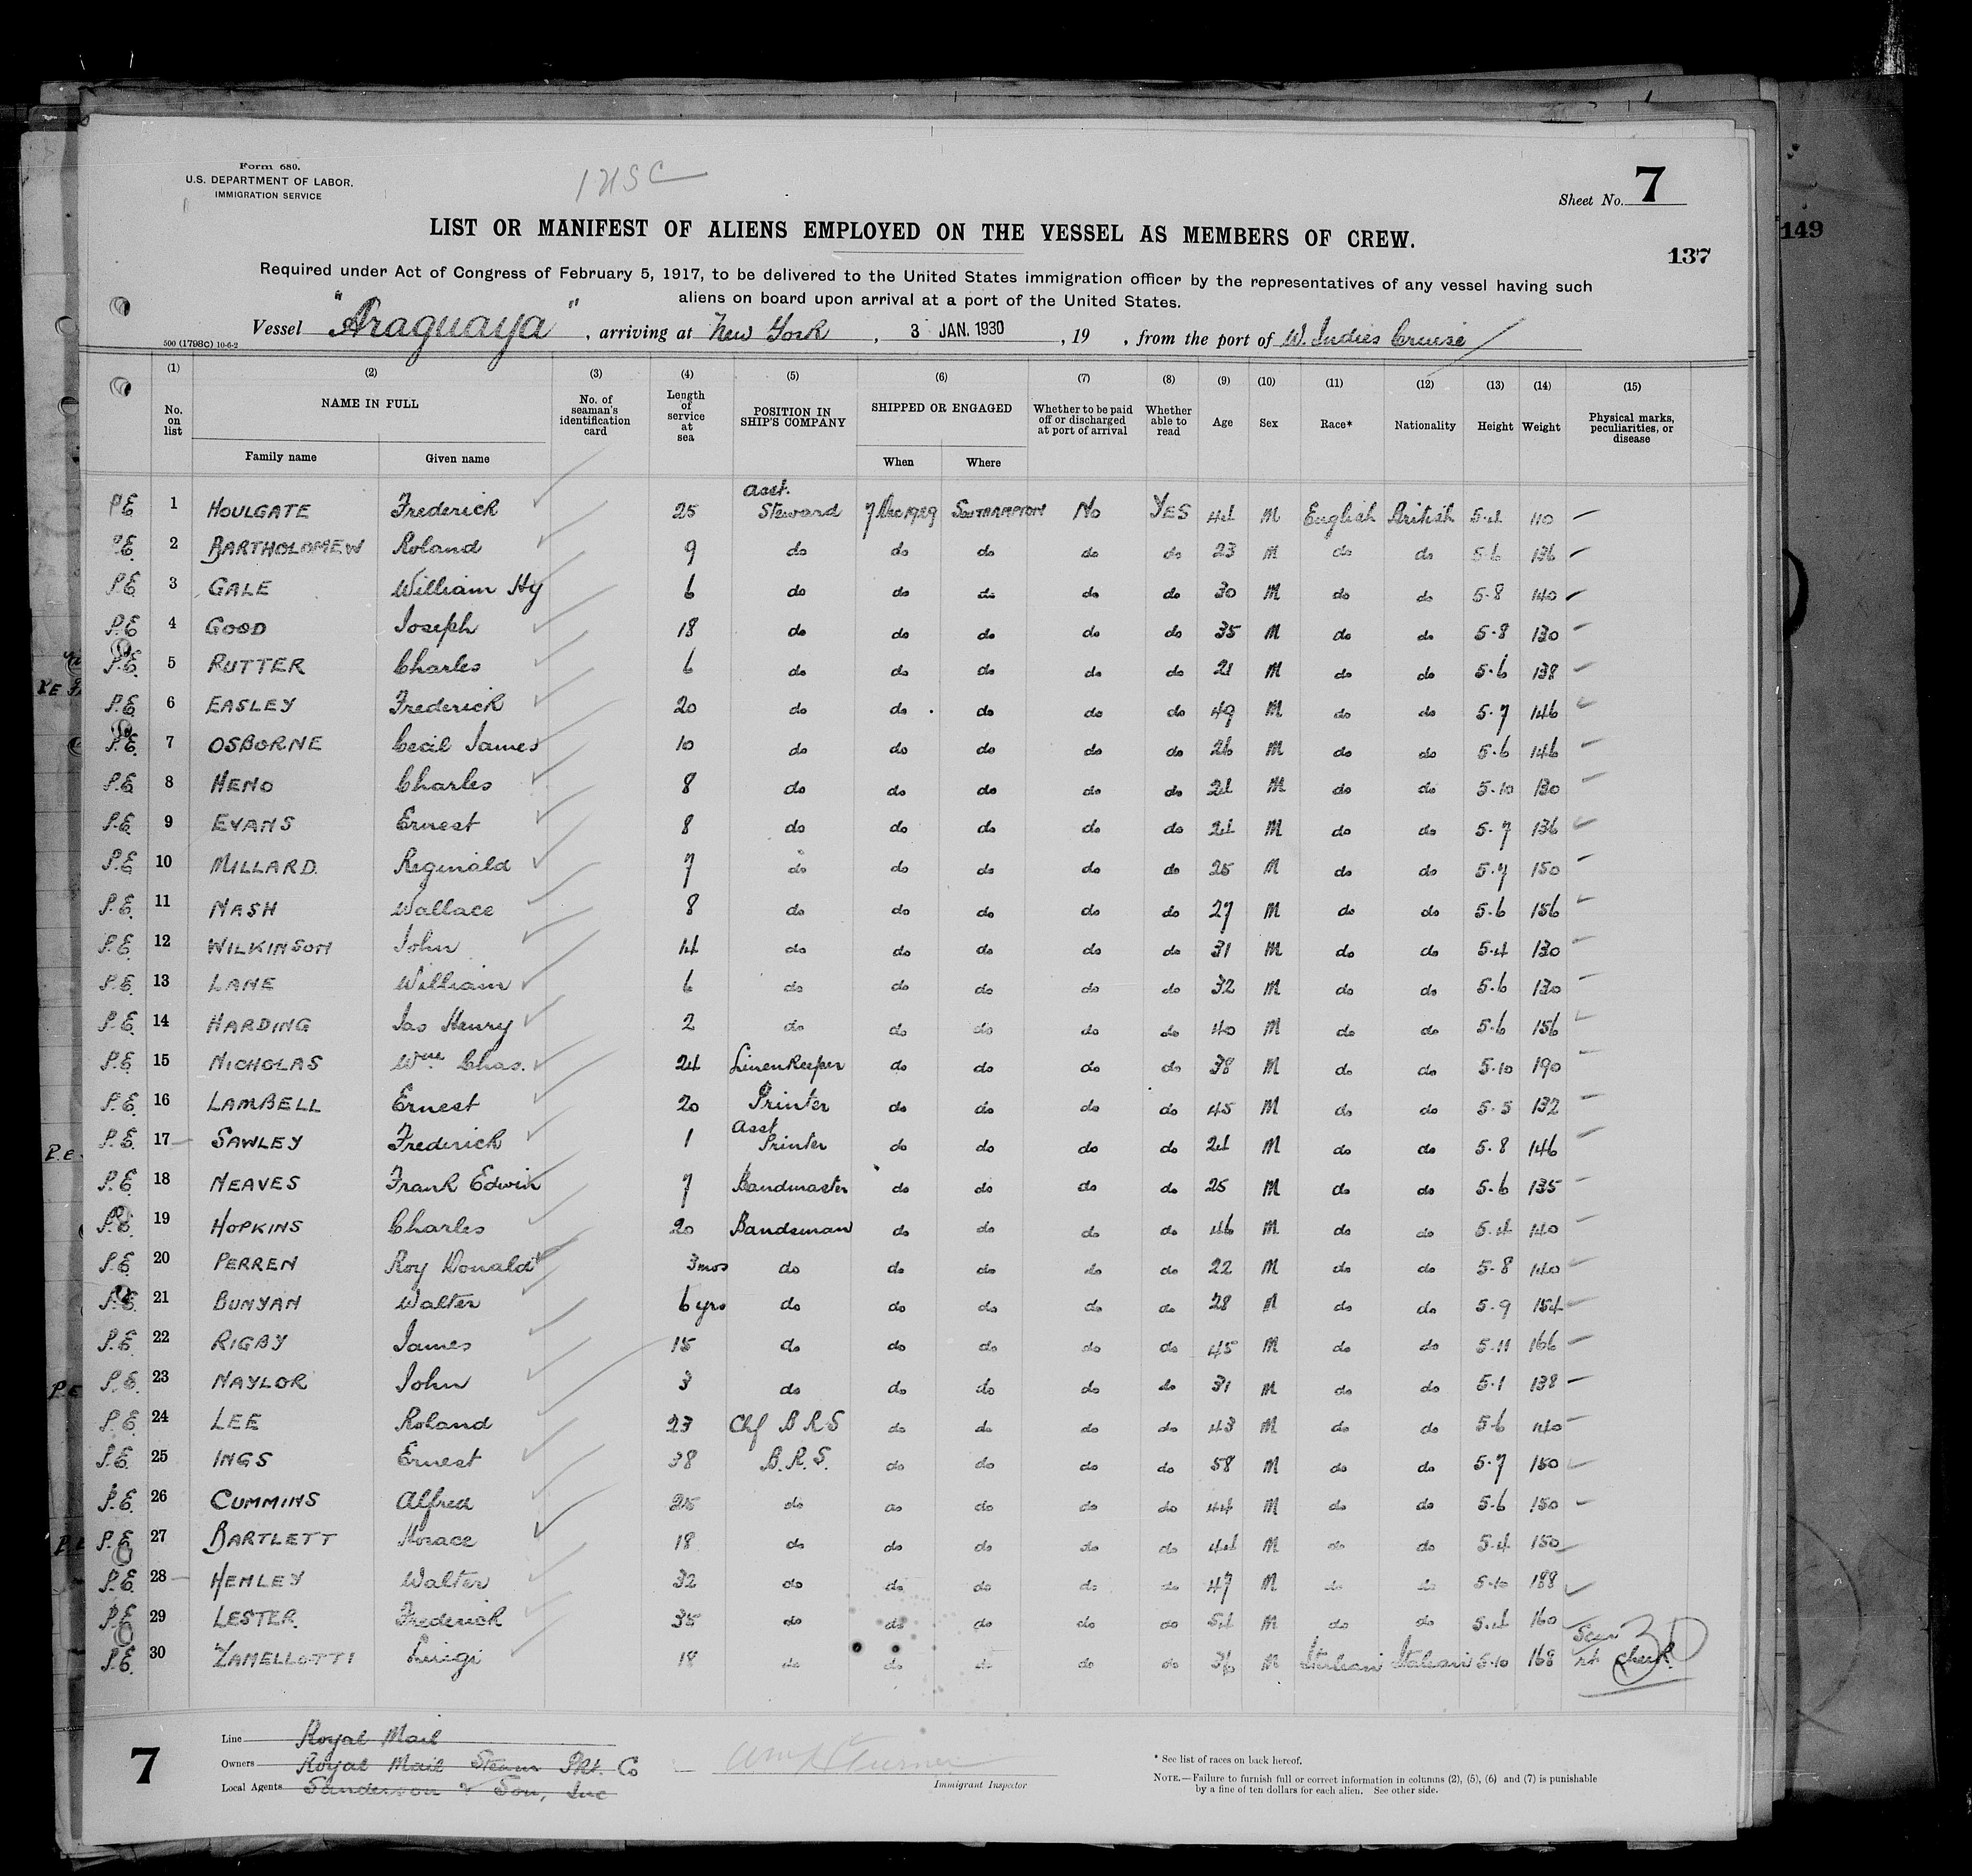 Form 680.
U.S. DEPARTMENT OF LABOR.
IMMIGRATION SERVICE
Sheet No. 7
LIST OR MANIFEST OF ALIENS EMPLOYED ON THE VESSEL AS MEMBERS OF CREW.
137
149
Required under Act of Congress of February 5, 1917, to be delivered to the United States immigration officer by the representatives of any vessel having such
aliens on board upon arrival at a port of the United States.
Vessel "Araguaya", arriving at New York, 3 JAN. 1930, 19 , from the port of W. Indies Cruise
500 (1798C) 10-6-2
(1) (2) (3) (4) (5) (6) (7) (8) (9) (10) (11) (12) (13) (14) (15)
No. on list NAME IN FULL No. of seaman's identification card Length of service at sea POSITION IN SHIP'S COMPANY SHIPPED OR ENGAGED Whether to be paid off or discharged at port of arrival Whether able to read Age Sex Race* Nationality Height Weight Physical marks, peculiarities, or disease
Family name Given name When Where
P.E. 1 HOULGATE Frederick 25 Asst. Steward 7 Dec 1929 SOUTHAMPTON No YES 44 M English British 5.4 110
P.E. 2 BARTHOLOMEW Roland 9 do do do do do 23 M do do 5.6 136
P.E. 3 GALE William Hy 6 do do do do do 30 M do do 5.8 140
P.E. 4 GOOD Joseph 18 do do do do do 35 M do do 5.8 130
P.E. 5 RUTTER Charles 6 do do do do do 21 M do do 5.6 138
P.E. 6 EASLEY Frederick 20 do do do do do 49 M do do 5.7 146
P.E. 7 OSBORNE Cecil James 10 do do do do do 26 M do do 5.6 146
P.E. 8 HENO Charles 8 do do do do do 24 M do do 5.10 130
P.E. 9 EVANS Ernest 8 do do do do do 24 M do do 5.7 136
P.E. 10 MILLARD. Reginald 7 do do do do do 25 M do do 5.7 150
P.E. 11 NASH Wallace 8 do do do do do 27 M do do 5.6 156
P.E. 12 WILKINSON John 14 do do do do do 31 M do do 5.4 130
P.E. 13 LANE William 6 do do do do do 32 M do do 5.6 130
P.E. 14 HARDING Jas Henry 2 do do do do do 40 M do do 5.6 156
P.E. 15 NICHOLAS Wm Chas. 24 Linenkeeper do do do do 38 M do do 5.10 190
P.E. 16 LAMBELL Ernest 20 Printer do do do do 45 M do do 5.5 132
P.E. 17 SAWLEY Frederick 1 Asst Printer do do do do 24 M do do 5.8 146
P.E. 18 NEAVES Frank Edwin 7 Bandmaster do do do do 25 M do do 5.6 135
P.E. 19 HOPKINS Charles 20 Bandsman do do do do 46 M do do 5.4 140
P.E. 20 PERREN Roy Donald 3 mos do do do do do 22 M do do 5.8 140
P.E. 21 BUNYAN Walter 6 yrs do do do do do 28 M do do 5.9 154
P.E. 22 RIGBY James 15 do do do do do 45 M do do 5.11 166
P.E. 23 NAYLOR John 3 do do do do do 31 M do do 5.1 138
P.E. 24 LEE Roland 23 Chf B R S do do do do 43 M do do 5.6 140
P.E. 25 INGS Ernest 38 B.R.S. do do do do 58 M do do 5.7 150
P.E. 26 CUMMINS Alfred 25 do do do do do 44 M do do 5.6 150
P.E. 27 BARTLETT Horace 18 do do do do do 44 M do do 5.4 150
P.E. 28 HENLEY Walter 32 do do do do do 47 M do do 5.10 188
P.E. 29 LESTER. Frederick 35 do do do do do 54 M do do 5.4 160
P.E. 30 ZAMELLOTTI Luigi 18 do do do do do 36 M Italian Italian 5.10 168 Scar rt cheek.
30
7
Line Royal Mail
Owners Royal Mail Steam Pkt. Co
Local Agents Sanderson & Son, Inc
Immigrant Inspector
* See list of races on back hereof.
NOTE.—Failure to furnish full or correct information in columns (2), (5), (6) and (7) is punishable
by a fine of ten dollars for each alien. See other side.